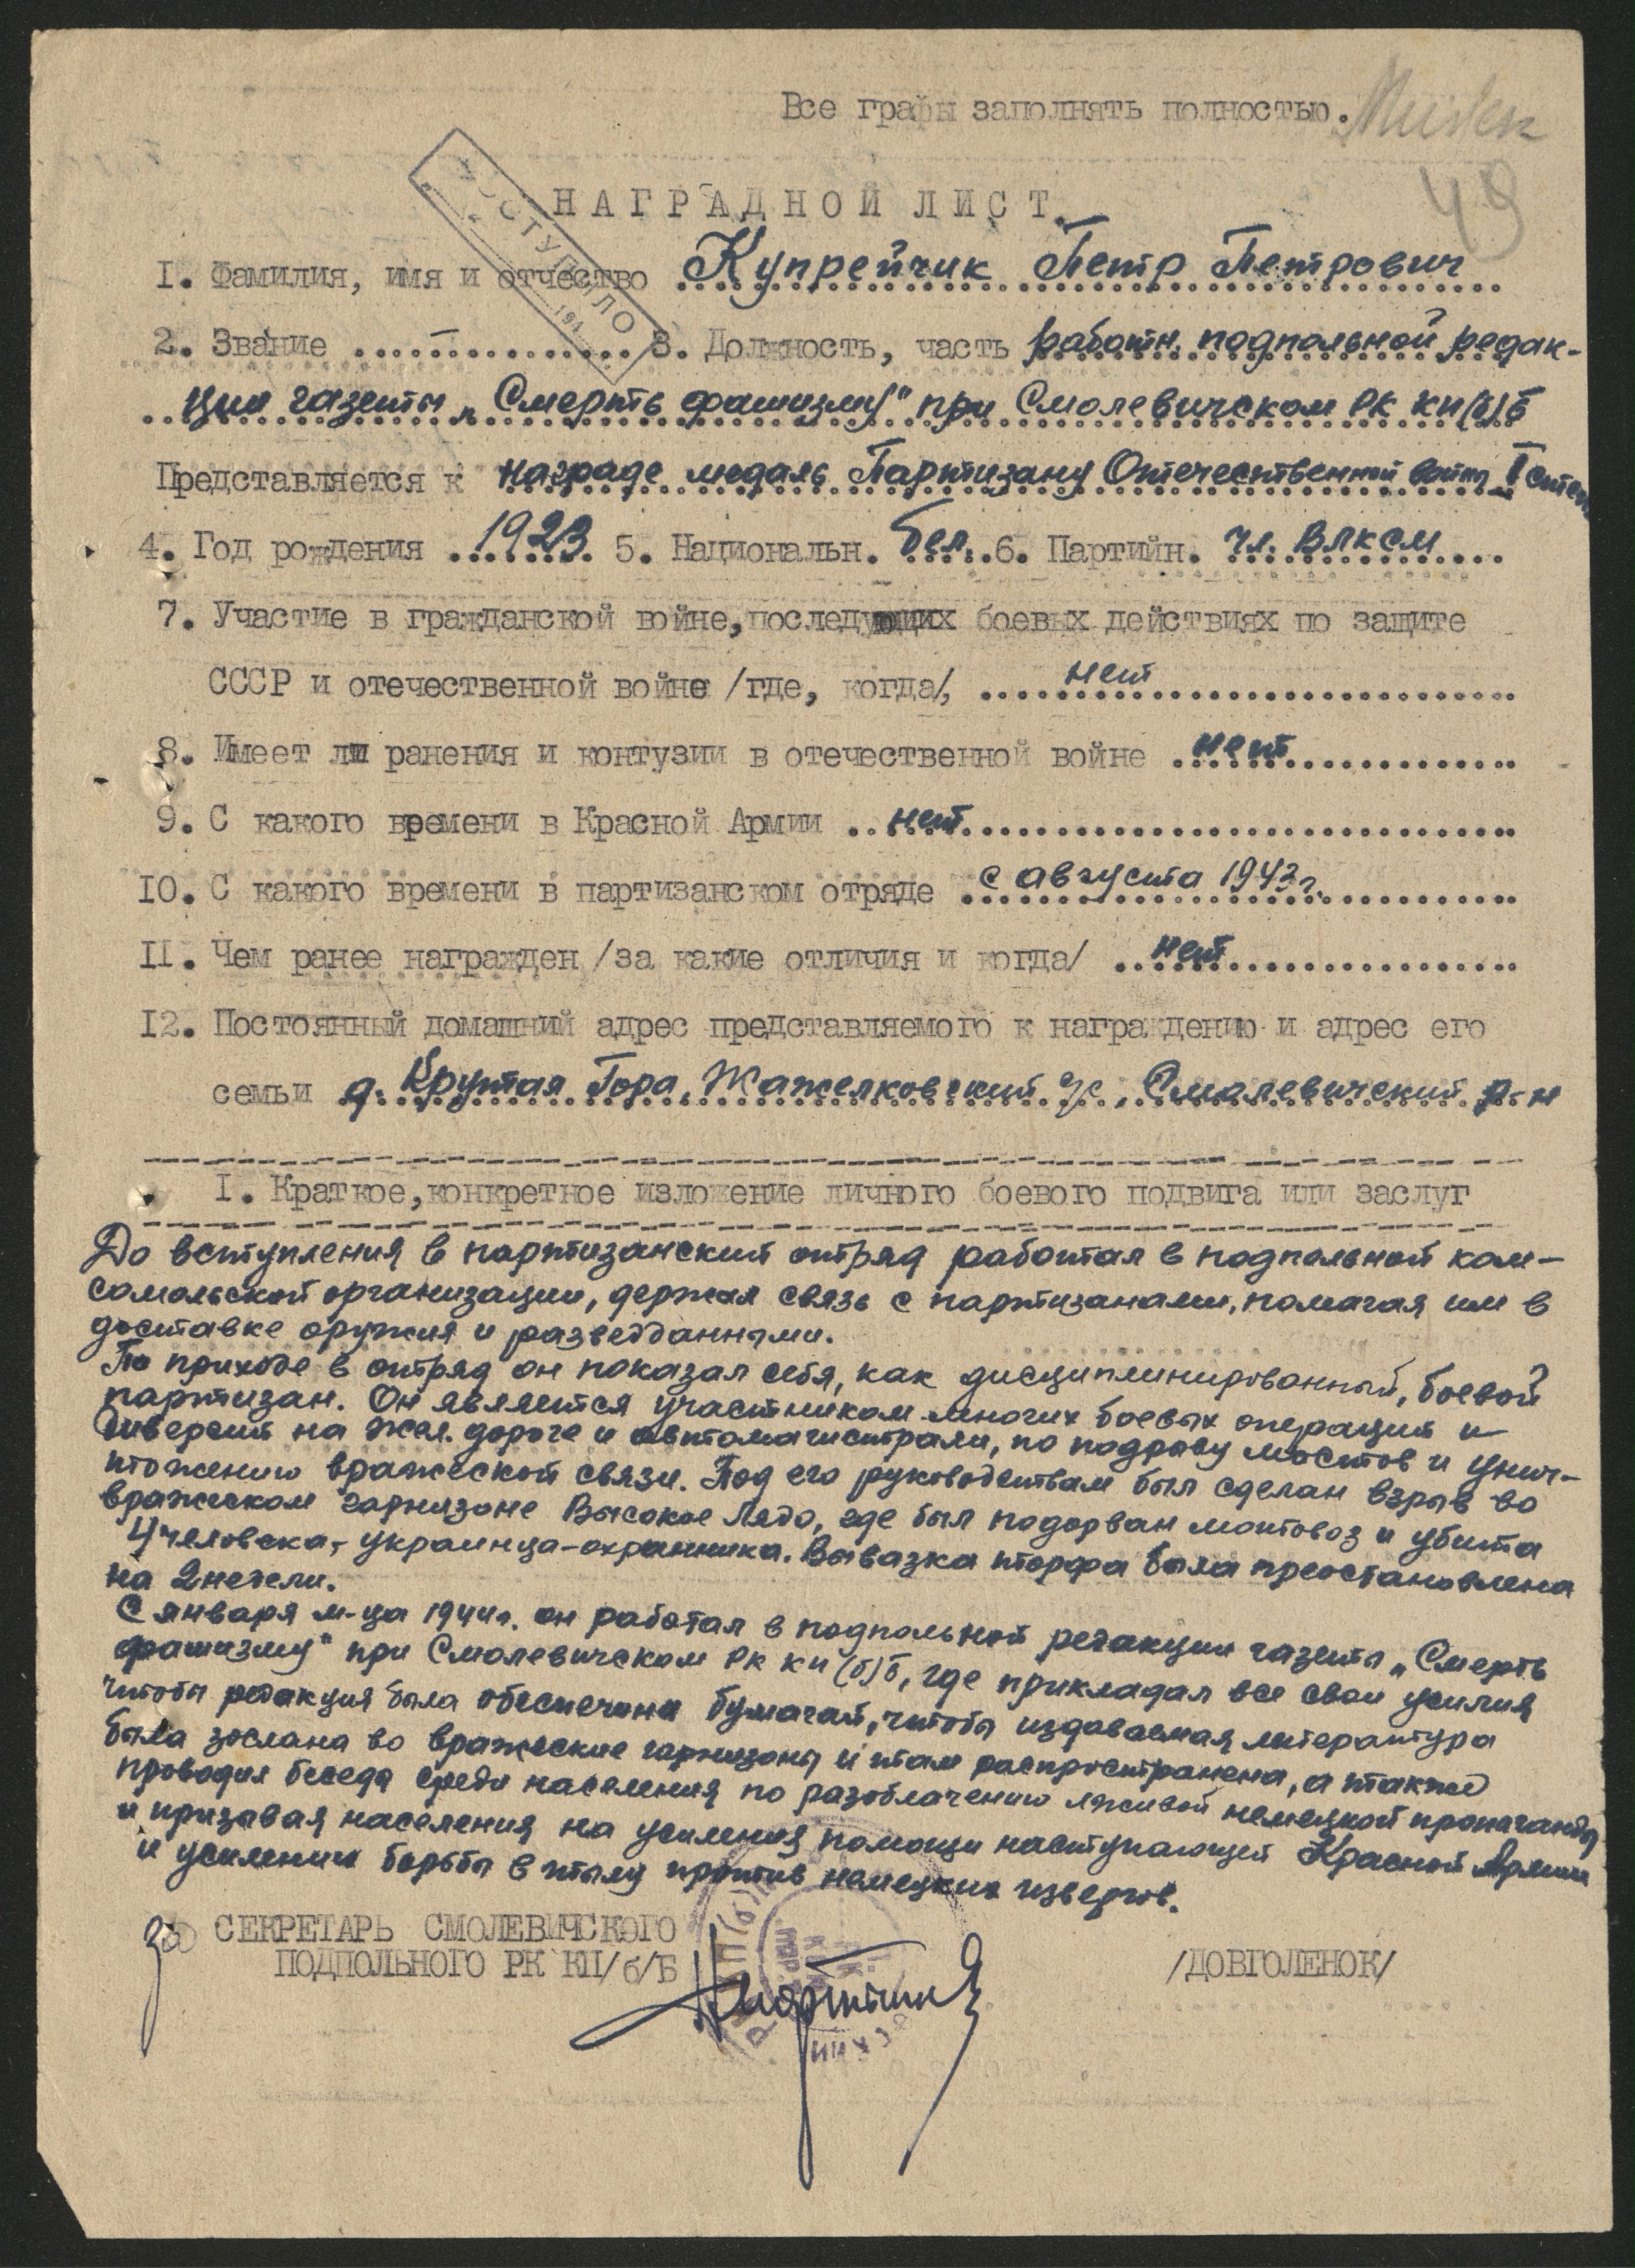 Все графы заполнять полностью.
49
ПОСТУПИЛО
194
НАГРАДНОЙ ЛИСТ.
I. Фамилия, имя и отчество Купрейчик Петр Петрович
2. Звание – 3. Должность, часть работн. подпольной редак-
ции газеты „Смерть фашизму" при Смолевичском РК КП(б)Б
Представляется к награде медаль Партизану Отечественной войны I степ
4. Год рождения 1923 5. Национальн. бел. 6. Партийн. чл. ВЛКСМ
7. Участие в гражданской войне, последующих боевых действиях по защите
СССР и отечественной войне /где, когда/, нет
8. Имеет ли ранения и контузии в отечественной войне нет
9. С какого времени в Красной Армии нет
10. С какого времени в партизанском отряде с августа 1943г.
II. Чем ранее награжден /за какие отличия и когда/ нет
I2. Постоянный домашний адрес представляемого к награждению и адрес его
семьи д. Крутая Гора, Жажелковский с/с, Смалевичский р-н
I. Краткое, конкретное изложение личного боевого подвига или заслуг
До вступления в партизанский отряд работал в подпольной ком-
самольской организации, держал связь с партизанами, помагая им в
доставке оружия и разведданными.
По приходе в отряд он показал себя, как дисциплинированный, боевой
партизан. Он является участником многих боевых операций и
диверсий на жел. дороге и автомагистрали, по подрыву мостов и унич-
тожению вражеской связи. Под его руководствам был сделан взрыв во
вражеском гарнизоне Высокое Лядо, где был подорван мотовоз и убита
4 человека, украинца-охранника. Вывазка торфа была преостановлена
на 2 недели.
С января м-ца 1944г. он работал в подпольной редакции газеты „Смерть
фашизму" при Смолевичском РК КП(б)Б, где прикладал все свои усилия
чтобы редакция была обеспечена бумагай, чтобы издаваемая литература
была заслана во вражеские гарнизоны и там распространена, а также
проводил беседы среди населения по разоблачению лживой немецкой пропаганды
и призавая населения на усиления помощи наступающей Красной Армии
и усилении борьбы в тылу против немецких извергов.
за СЕКРЕТАРЬ СМОЛЕВИЧСКОГО
ПОДПОЛЬНОГО РК КП/б/Б /ДОВГОЛЕНОК/